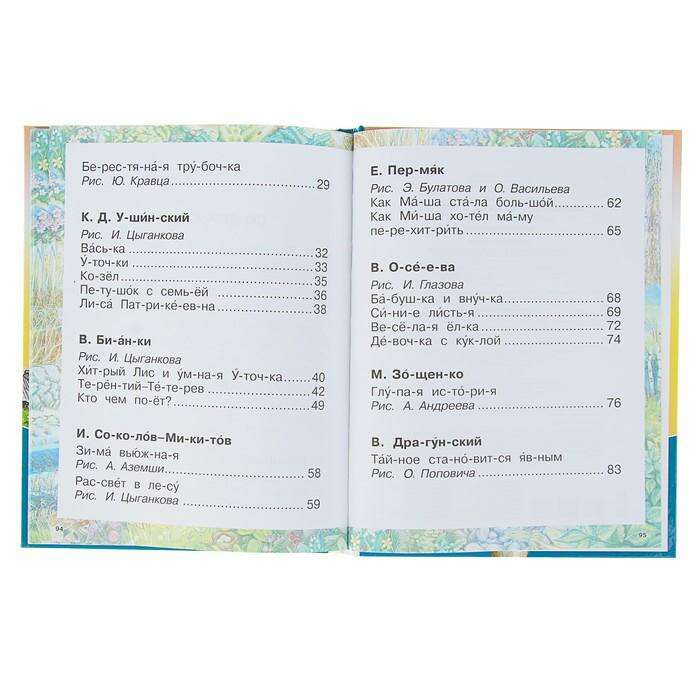 Бе-рес-тя-на́-я тру́-боч-ка
Рис. Ю. Кравца.....................29
К. Д. У-ши́н-ский
Рис. И. Цыганкова
Ва́сь-ка.....................32
У́-точ-ки.....................33
Ко-зёл.....................35
Пе-ту-шо́к с семь-ёй.....................36
Ли-са́ Пат-ри-ке́-ев-на.....................38
В. Би-а́н-ки
Рис. И. Цыганкова
Хи́т-рый Лис и у́м-на-я У́-точ-ка.......40
Те-ре́н-тий–Те́-те-рев.....................42
Кто чем по-ёт?.....................49
И. Со-ко-ло́в–Ми-ки-то́в
Зи-ма́ вью́ж-на-я
Рис. А. Аземши.....................58
Рас-све́т в ле-су́
Рис. И. Цыганкова.....................59
94
Е. Пер-мя́к
Рис. Э. Булатова и О. Васильева
Как Ма́-ша ста́-ла боль-шо́й...........62
Как Ми́-ша хо-те́л ма́-му
пе-ре-хит-ри́ть.....................65
В. О-се́-е-ва
Рис. И. Глазова
Ба́-буш-ка и вну́ч-ка.....................68
Си́-ни-е ли́сть-я.....................69
Ве-сё-ла-я ёл-ка.....................72
Де́-воч-ка с ку́к-лой.....................74
М. Зо́-щен-ко
Глу́-па-я ис-то́-ри-я
Рис. А. Андреева.....................76
В. Дра-гу́н-ский
Та́й-ное ста-но́-вит-ся я́в-ным
Рис. О. Поповича.....................83
95